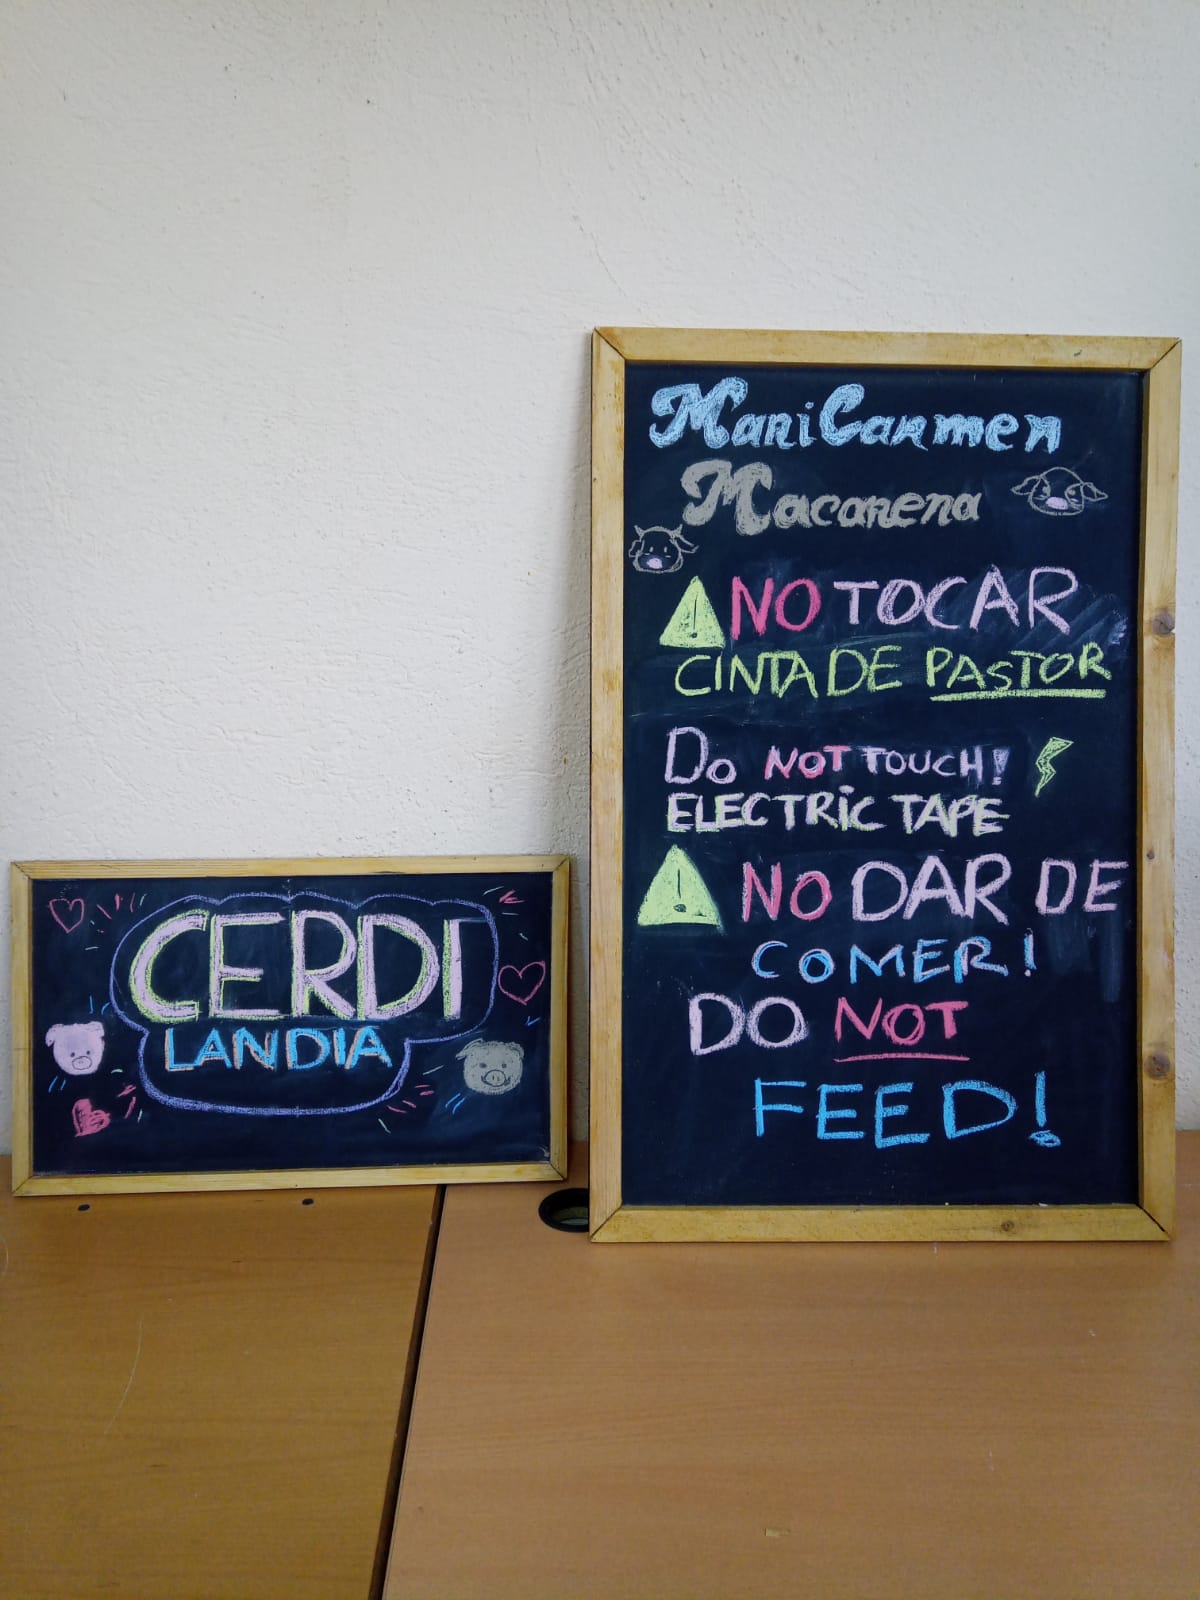 CERDI
LANDIA
MariCarmen
Macarena
NO TOCAR
CINTA DE PASTOR
Do NOT TOUCH!
ELECTRIC TAPE
NO DAR DE
COMER!
DO NOT
FEED!